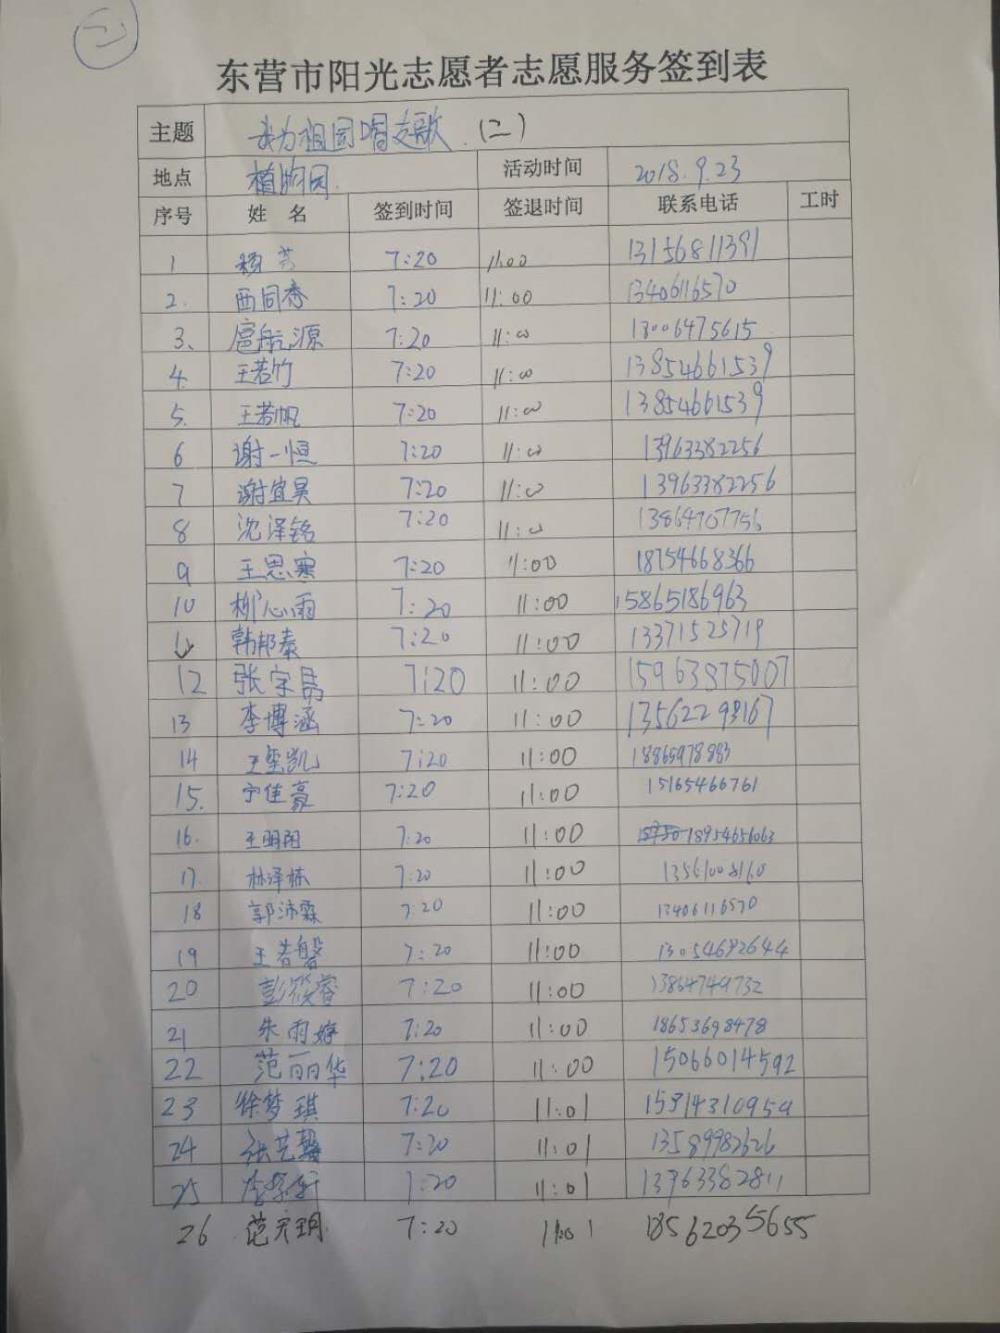 二
东营市阳光志愿者志愿服务签到表
主题 我为祖国唱支歌.(二)
地点 植物园. 活动时间 2018.9.23
序号 姓 名 签到时间 签退时间 联系电话 工时
1 杨芳 7:20 11:00 13156811391
2. 西同香 7:20 11:00 13406116570
3、 扈航源 7:20 11:00 13006475615
4. 王若竹 7:20 11:00 13854661539
5. 王若帆 7:20 11:00 13854661539
6 谢一恒 7:20 11:00 13963382256
7 谢宜昊 7:20 11:00 13963382256
8 沈泽铭 7:20 11:00 13864707756
9 王思寒 7:20 11:00 18754668366
10 柳心雨 7:20 11:00 15865186963
11 韩邦泰 7:20 11:00 13371525719
12 张宇昂 7:20 11:00 15963875007
13 李博涵 7:20 11:00 13562298167
14 王玺凯 7:20 11:00 18865978883
15. 宁佳豪 7:20 11:00 15165466761
16. 王明阳 7:20 11:00 18954656063
17. 林泽栋 7:20 11:00 13561008160
18 郭沛霖 7:20 11:00 13406116570
19 王若馨 7:20 11:00 13054682644
20 彭筱睿 7:20 11:00 13864749732
21 朱雨婷 7:20 11:00 18653698478
22 范丽华 7:20 11:00 15066014592
23 徐梦琪 7:20 11:01 15914310959
24 张艺馨 7:20 11:01 13589982626
25 7:20 11:01 13963382811
26 范天玥 7:20 11:01 18562035655